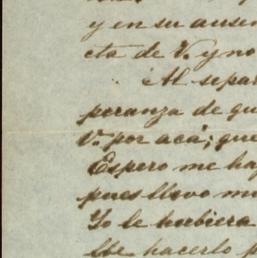 y en su ausen
cta de V. y no
Al sepa
peranza de qu
V. por acá; que
Espero me ha
pues llevo m
Yo le hubiera
hacerlo p